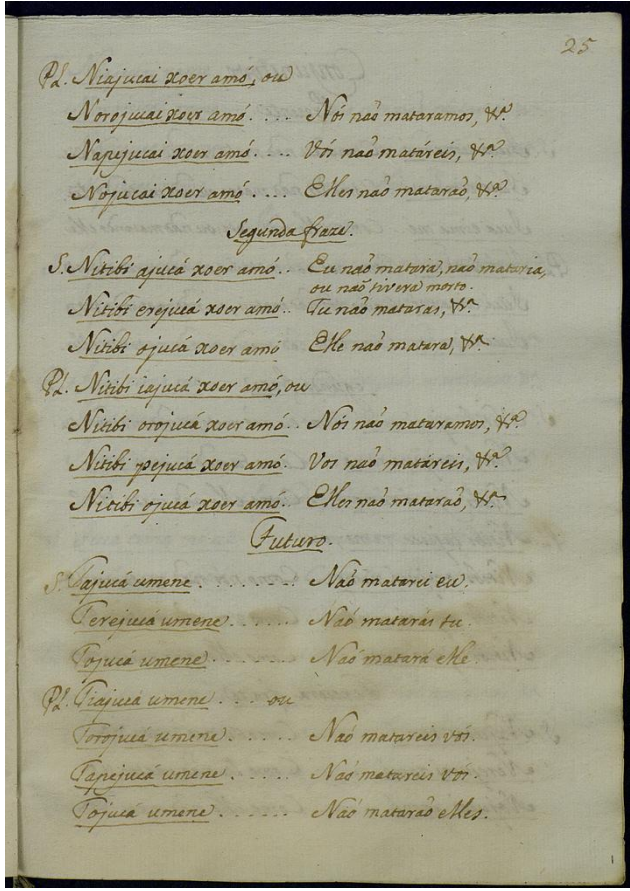 25
Pl. Niajucai xoer amó, ou
Norojucai xoer amó.... Nós naõ mataramos, &ª.
Napejucai xoer amó.... Vós naõ matáreis, &ª.
Nojucai xoer amó..... Elles naõ mataraõ, &ª.
Segunda fraze.
S. Nitibi ajucá xoer amó.. Eu naõ matara, naõ mataria,
ou naõ tivera morto.
Nitibi erejucá xoer amó.. Tu naõ mataras, &ª
Nitibi ojucá xoer amó Elle naõ matara, &ª.
Pl. Nitibi iajucá xoer amó, ou
Nitibi orojucá xoer amó.. Nós naõ mataramos, &ª.
Nitibi pejucá xoer amó.. Vos naõ matáreis, &ª.
Nitibi ojucá xoer amó.. Elles naõ mataraõ, &ª.
Futuro.
S. Tajucá umene........ Naõ matarei eu.
Terejucá umene....... Naõ matarás tu.
Tojucá umene........ Naõ matará elle.
Pl. Tiajucá umene.... ou
Torojucá umene..... Naõ matareis vós.
Tapejucá umene..... Naõ matareis vós.
Tojucá umene...... Naõ mataraõ elles.